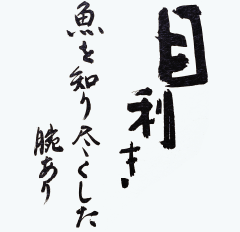 目利き
魚を知り尽くした
腕あり